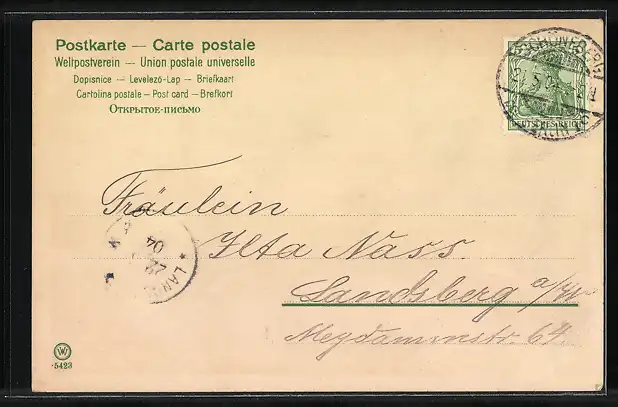 Postkarte — Carte postale
Weltpostverein — Union postale universelle
Dopisnice — Levelező-Lap — Briefkaart
Cartolina postale — Post card — Brefkort
Открытое-письмо
SCHÖNEBERG
DEUTSCHES REICH
Fräulein
Ilta Nass.
Landsberg a/W
Meydammstr. 64
LAN
04
5423